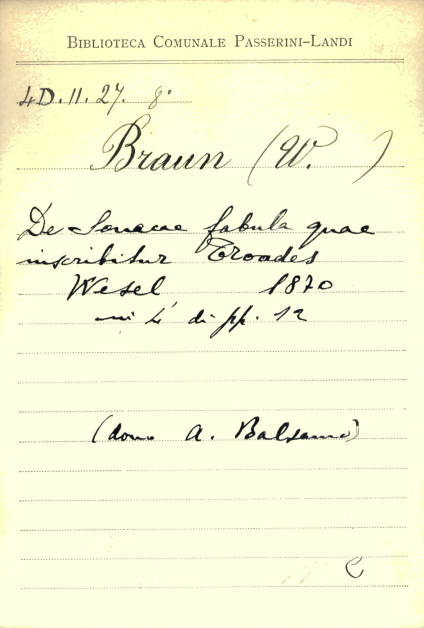 BIBLIOTECA COMUNALE PASSERINI-LANDI
4D.II.27. 8°
Braun (W. )
De Senecae fabula quae
inscribitur Troades
Wesel 1870
in 4° di pp. 12
(dono A. Balsamo)
C